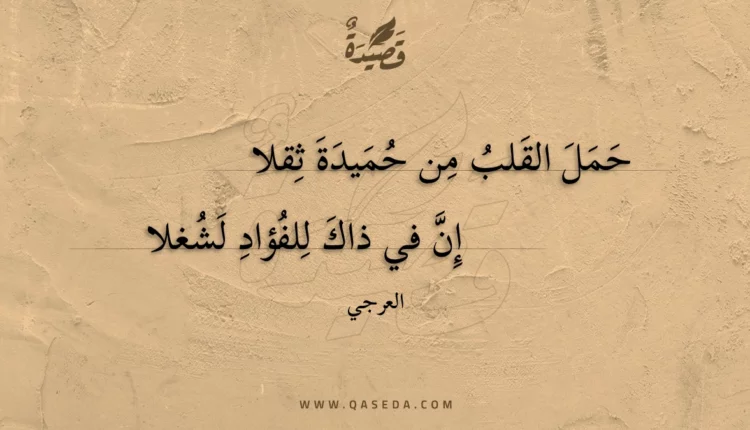 قَصِيدَةٌ
حَمَلَ القَلبُ مِن حُمَيدَةَ ثِقلا
إِنَّ في ذاكَ لِلفُؤادِ لَشُغلا
العرجي
WWW.QASEDA.COM